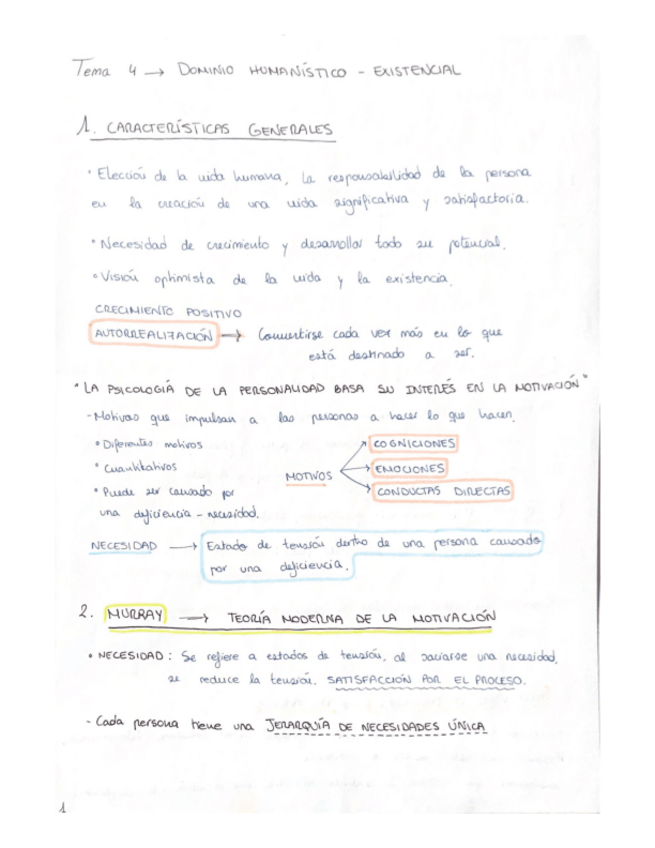 Tema 4 → DOMINIO HUMANÍSTICO - EXISTENCIAL
1. CARACTERÍSTICAS GENERALES
• Elección de la vida humana, la responsabilidad de la persona
en la creación de una vida significativa y satisfactoria.
• Necesidad de crecimiento y desarrollar todo su potencial.
• Visión optimista de la vida y la existencia.
CRECIMIENTO POSITIVO
AUTORREALIZACIÓN → Convertirse cada vez más en lo que
está destinado a ser.
"LA PSICOLOGÍA DE LA PERSONALIDAD BASA SU INTERÉS EN LA MOTIVACIÓN"
- Motivos que impulsan a las personas a hacer lo que hacen.
• Diferentes motivos
• Cuantitativos
• Puede ser causado por
una deficiencia - necesidad.
MOTIVOS
→ COGNICIONES
→ EMOCIONES
→ CONDUCTAS DIRECTAS
NECESIDAD → Estado de tensión dentro de una persona causado
por una deficiencia.
2. MURRAY → TEORÍA MODERNA DE LA MOTIVACIÓN
• NECESIDAD: Se refiere a estados de tensión, al saciarse una necesidad,
se reduce la tensión. SATISFACCIÓN POR EL PROCESO.
- Cada persona tiene una JERARQUÍA DE NECESIDADES ÚNICA
1